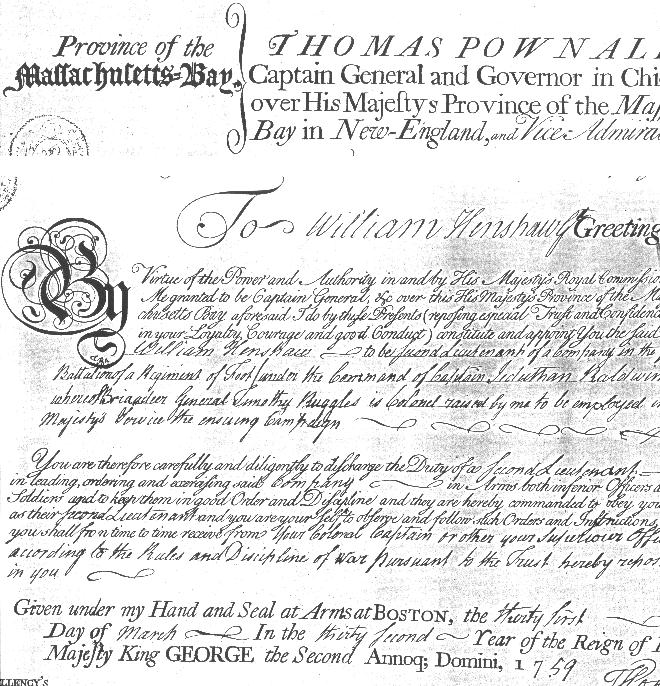 Province of the
Maſſachuſetts=Bay,
THOMAS POWNALL
Captain General and Governor in Chi
over His Majeſty's Province of the Maſ
Bay in New-England, and Vice-Admira
To William Henshaw Greeting
By
Virtue of the Power and Authority in and by His Majeſty's Royal Commiſsio
Me granted to be Captain General, &c over this His Majeſty's Province of the M
chuſetts Bay aforeſaid I do by theſe Preſents (repoſing eſpecial Truſt and Confidenc
in your Loyalty, Courage and good Conduct) conſtitute and appoint You the ſaid
William Henshaw to be ſecond Lieutenant of a Company in the
Battalion of a Regiment of Foot under the Command of Captain Jeduthan Baldwin
whereof Brigadeer General Timothy Ruggles is Colonel raised by me to be employed
Majeſty's Service the ensuing Campaign
You are therefore carefully and diligently to diſcharge the Duty of a ſecond Lieutenant
in leading, ordering and exerciſing ſaid Company in Arms both inferior Officers a
Soldiers and to keep them in good Order and Diſcipline and they are hereby commanded to obey you
as their ſecond Lieutenant and you are your ſelf to obſerve and follow ſuch Orders and Inſtructions,
you ſhall from time to time receive from Your Colonel Captain or other your Superiour Offi
according to the Rules and Discipline of War pursuant to the Trust hereby repos
in you
Given under my Hand and Seal at Arms at BOSTON, the thirty first
Day of March In the thirty second Year of the Reign of
Majeſty King GEORGE the Second Annoq; Domini, 1759
LLENCY'S